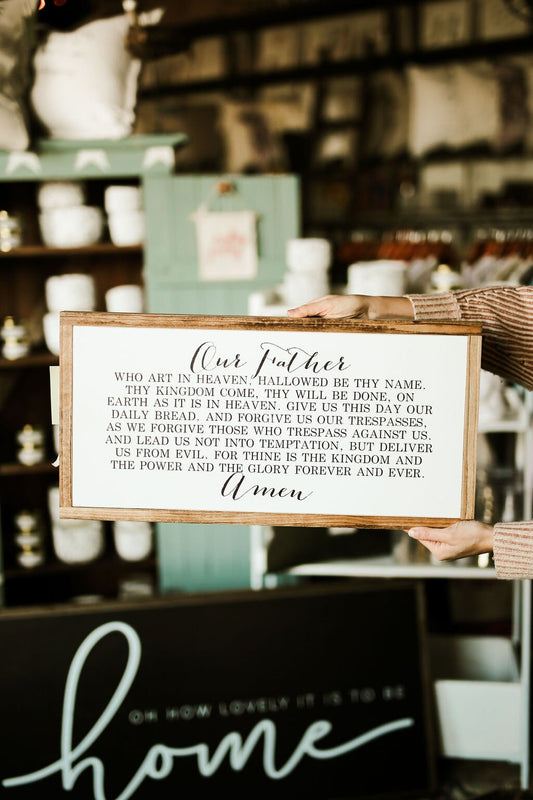 Our Father
WHO ART IN HEAVEN, HALLOWED BE THY NAME.
THY KINGDOM COME, THY WILL BE DONE, ON
EARTH AS IT IS IN HEAVEN. GIVE US THIS DAY OUR
DAILY BREAD. AND FORGIVE US OUR TRESPASSES,
AS WE FORGIVE THOSE WHO TRESPASS AGAINST US.
AND LEAD US NOT INTO TEMPTATION, BUT DELIVER
US FROM EVIL. FOR THINE IS THE KINGDOM AND
THE POWER AND THE GLORY FOREVER AND EVER.
Amen
OH HOW LOVELY IT IS TO BE
home